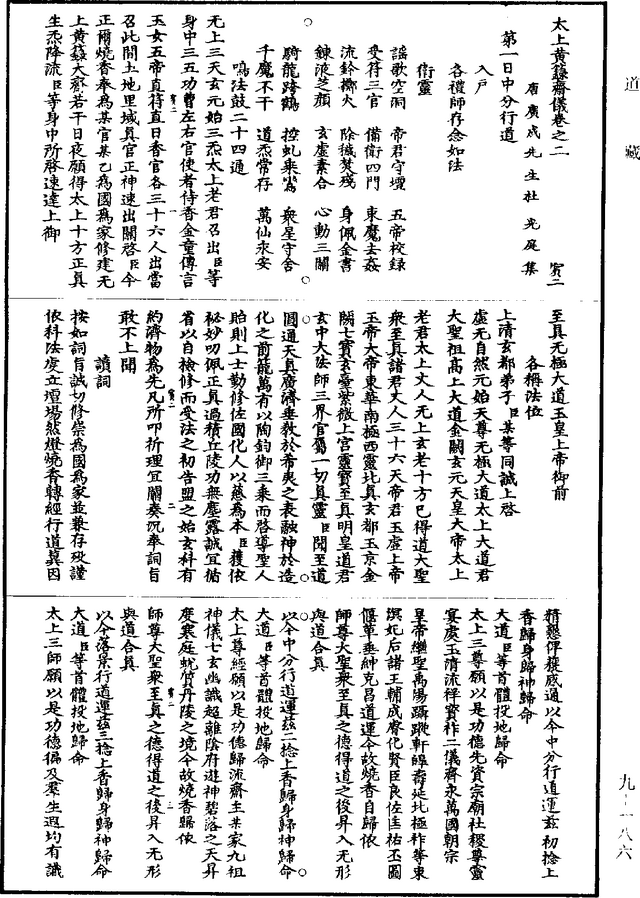 道藏
太上黃籙齋儀卷之二 賓二
唐廣成先生杜光庭集
第一日中分行道
入戶
各禮師存念如法
衛靈
謡歌空洞 帝君守壇 五帝校録
受符三官 備衛四門 東魔去姦
流鈴擲火 除穢焚殘 身佩金書
鍊液之顔 玄虛素合 心動三關
騎龍跨鶴 控虬乘鸞 衆星守舍
千魔不干 道炁常存 萬仙來安
鳴法鼓二十四通
无上三天玄元始三炁太上老君召出臣等
身中三五功曹左右官使者侍香金童傳言
玉女五帝直符直日香官各三十六人出當
召此間土地里域真官正神速出關啓臣今
正爾燒香奉為某官某乙為國為家修建无
上黃籙大齋若干日夜願得太上十方正真
生炁降流臣等身中所啓速達上御
至真无極大道玉皇上帝御前
各稱法位
上清玄都弟子臣某等同誠上啓
虛无自然元始天尊无極大道太上大道君
大聖祖高上大道金闕玄元天皇大帝太上
老君太上丈人无上玄老十方已得道大聖
衆至真諸君丈人三十六天帝君玉虛上帝
玉帝大帝東華南極西靈北真玄都玉京金
闕七寶玄臺紫微上宮靈寶至真明皇道君
玄中大法師三界官屬一切真靈臣聞至道
圓通天真廣濟垂敎於希夷之表融神於造
化之前籠萬有以陶鈞御三乘而啓導聖人
貽則上士勤修佐國化人以慈為本臣獲依
秘妙叨佩正真過積丘陵功無塵露誠宜循
省以自檢修而受法之初告盟之始玄科有
約濟物為先凡所叩祈理宜關奏沉奉詞旨
敢不上聞
讀詞
按如詞旨誠切修崇為國為家並兼存歿謹
依科法度立壇場然燈燒香轉經行道冀因
精懇俾獲感通以今中分行道運茲初捻上
香歸身歸神歸命
大道臣等首體投地歸命
太上三尊願以是功德先資宗廟社稷尊靈
宴處玉清流祥寳祚二儀齊永萬國朝宗
皇帝繼聖禹湯躡蹤軒皥壽延北極祚等東
溟妃后諸王輔成睿化賢臣良佐匡祐丕圖
偃革垂紳克昌道運今故燒香自歸依
師尊大聖衆至真之德得道之後昇入无形
與道合真
以今中分行道運茲二捻上香歸身歸神歸命
大道臣等首體投地歸命
太上尊經願以是功德歸流齋主某家九祖
神儀七玄幽識超離陰府遊神碧落之天昇
度寒庭蛻質丹陵之境今故燒香歸依
師尊大聖衆至真之德得道之後昇入无形
與道合真
以今落景行道運茲三捻上香歸身歸神歸命
大道臣等首體投地歸命
太上三師願以是功德徧及羣生遐均有識
九-一八六